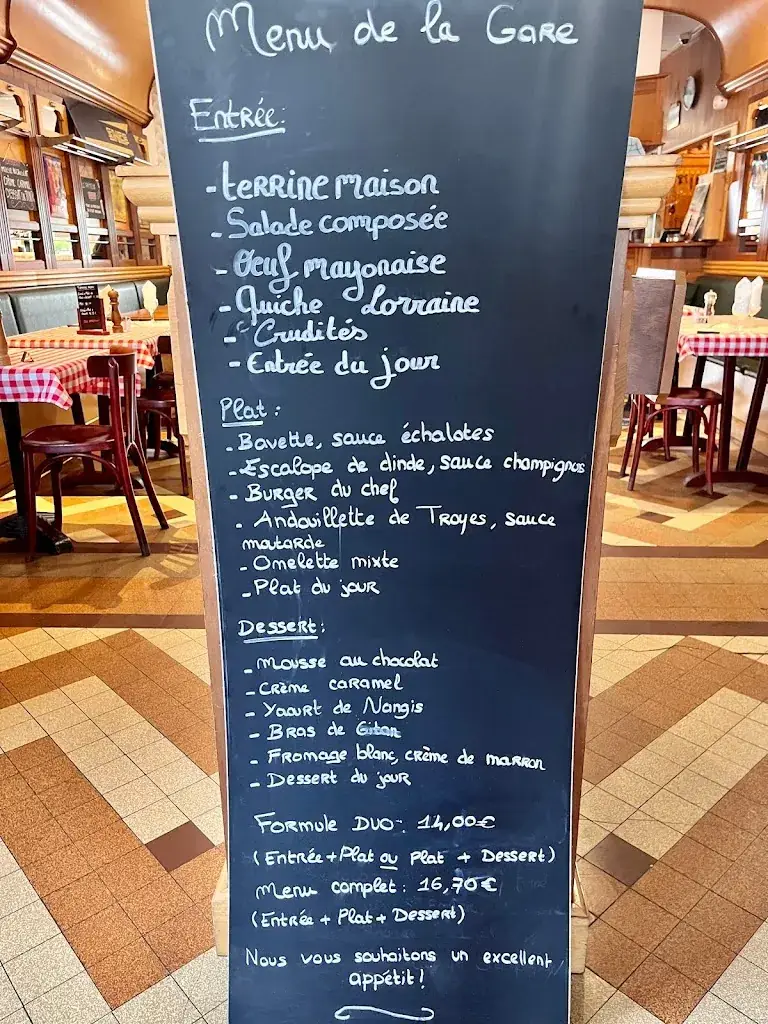 Menu de la Gare
Entrée:
- terrine maison
- Salade composée
- Oeuf mayonaise
- Quiche Lorraine
- Crudités
- Entrée du jour
Plat:
- Bavette, sauce échalotes
- Escalope de dinde, sauce champignos
- Burger du chef
- Andouillette de Troyes, sauce
moutarde
- Omelette mixte
- Plat du jour
Dessert:
- Mousse au chocolat
- Crème caramel
- Yaourt de Nangis
- Bras de Gitan
- Fromage blanc, crème de marron
- Dessert du jour
Formule DUO: 14,00€
(Entrée+Plat ou Plat + Dessert)
Menu complet: 16,70€
(Entrée + Plat + Dessert)
Nous vous souhaitons un excellent
appétit!